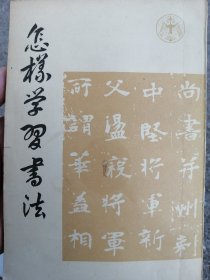 怎樣学習書法
尚書并州刺
中堅将軍新
父盪稅將軍
所謂華益相